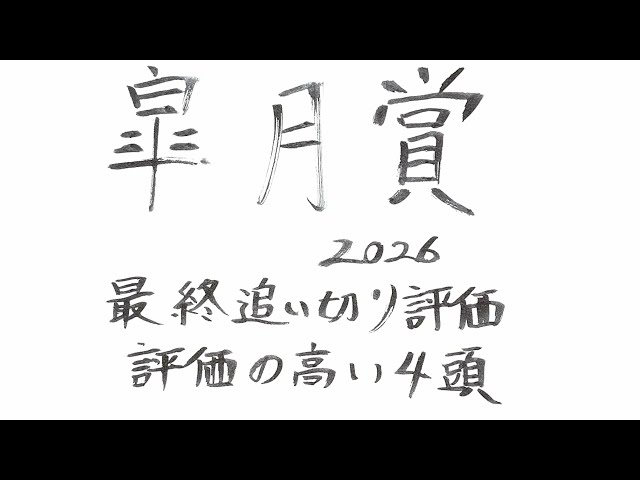 皐月賞
2026
最終追い切り評価
評価の高い4頭